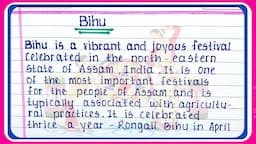 Bihu
Bihu is a vibrant and joyous festival
celebrated in the north-eastern
state of Assam, India. It is one
of the most important festivals
for the people of Assam and is
typically associated with agricultu-
ral practices. It is celebrated
thrice a year - Rongali Bihu in April